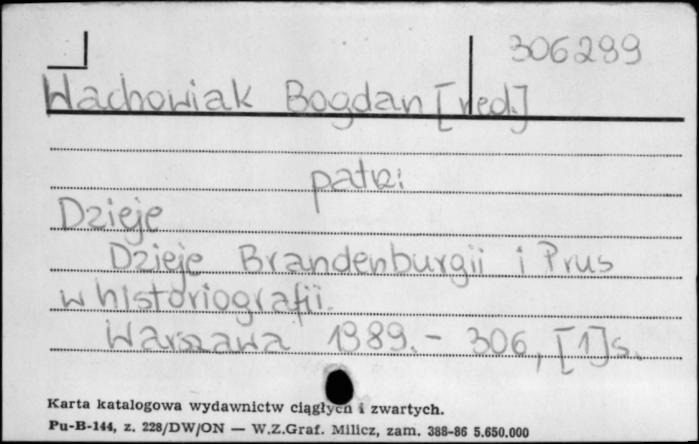 306299
Wachowiak Bogdan [red.]
patrz:
Dzieje
Dzieje Brandenburgii i Prus
w historiografii.
Warszawa 1989. - 306, [1]s.
Karta katalogowa wydawnictw ciągłych i zwartych.
Pu-B-144, z. 228/DW/ON — W.Z.Graf. Milicz, zam. 388-86 5.650.000